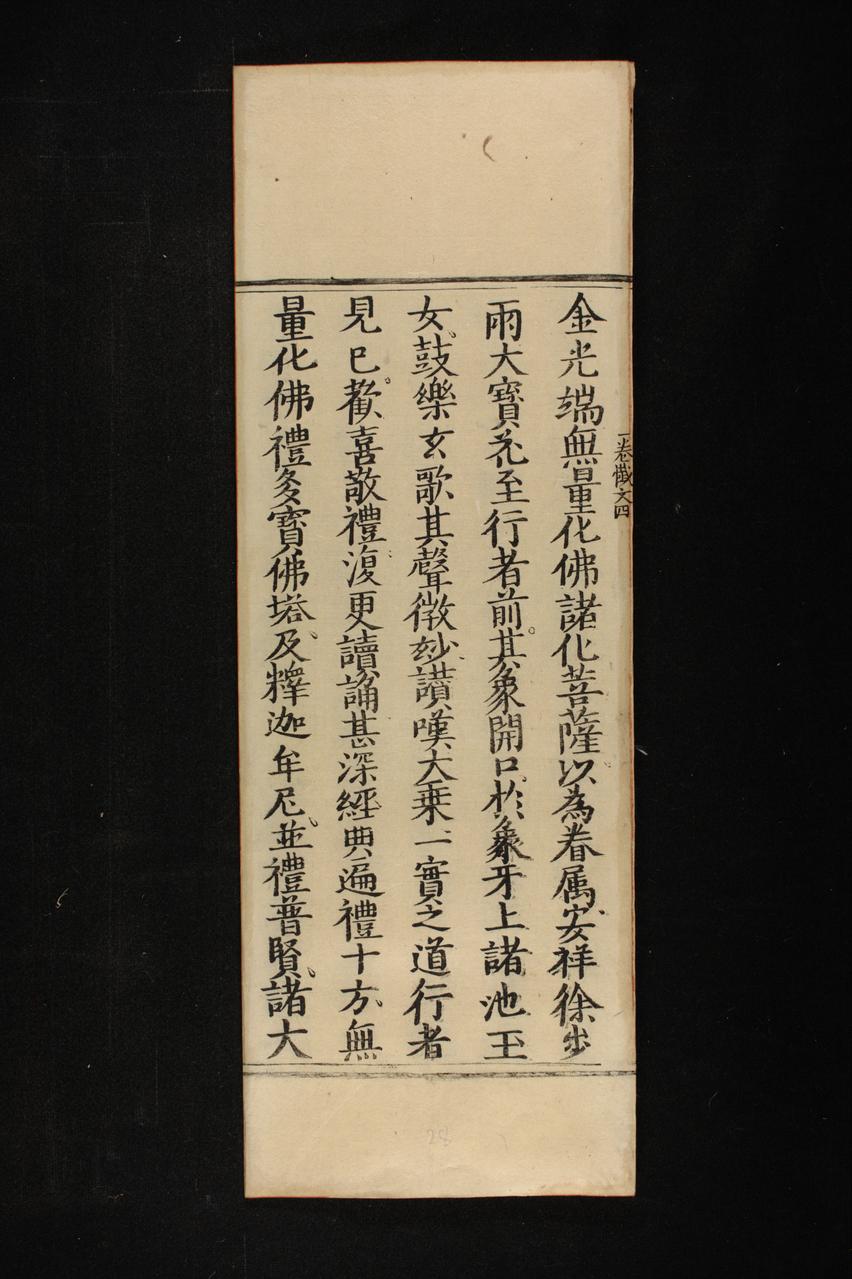 一卷懺文四
金光端無量化佛諸化菩薩以為眷属安祥徐步
雨大寶花至行者前其象開口於象牙上諸池玉
女鼓樂玄歌其聲微玅讃嘆大乗一實之道行者
見已歡喜敬禮復更讀誦甚深經典遍禮十方無
量化佛禮多寶佛塔及釋迦牟尼並禮普賢諸大
28